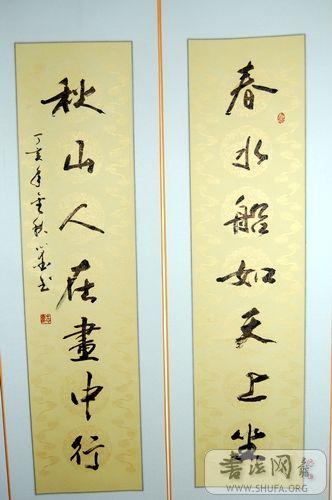 春水船如天上坐
秋山人在畫中行
丁亥年
書法网
WWW.SHUFA.ORG